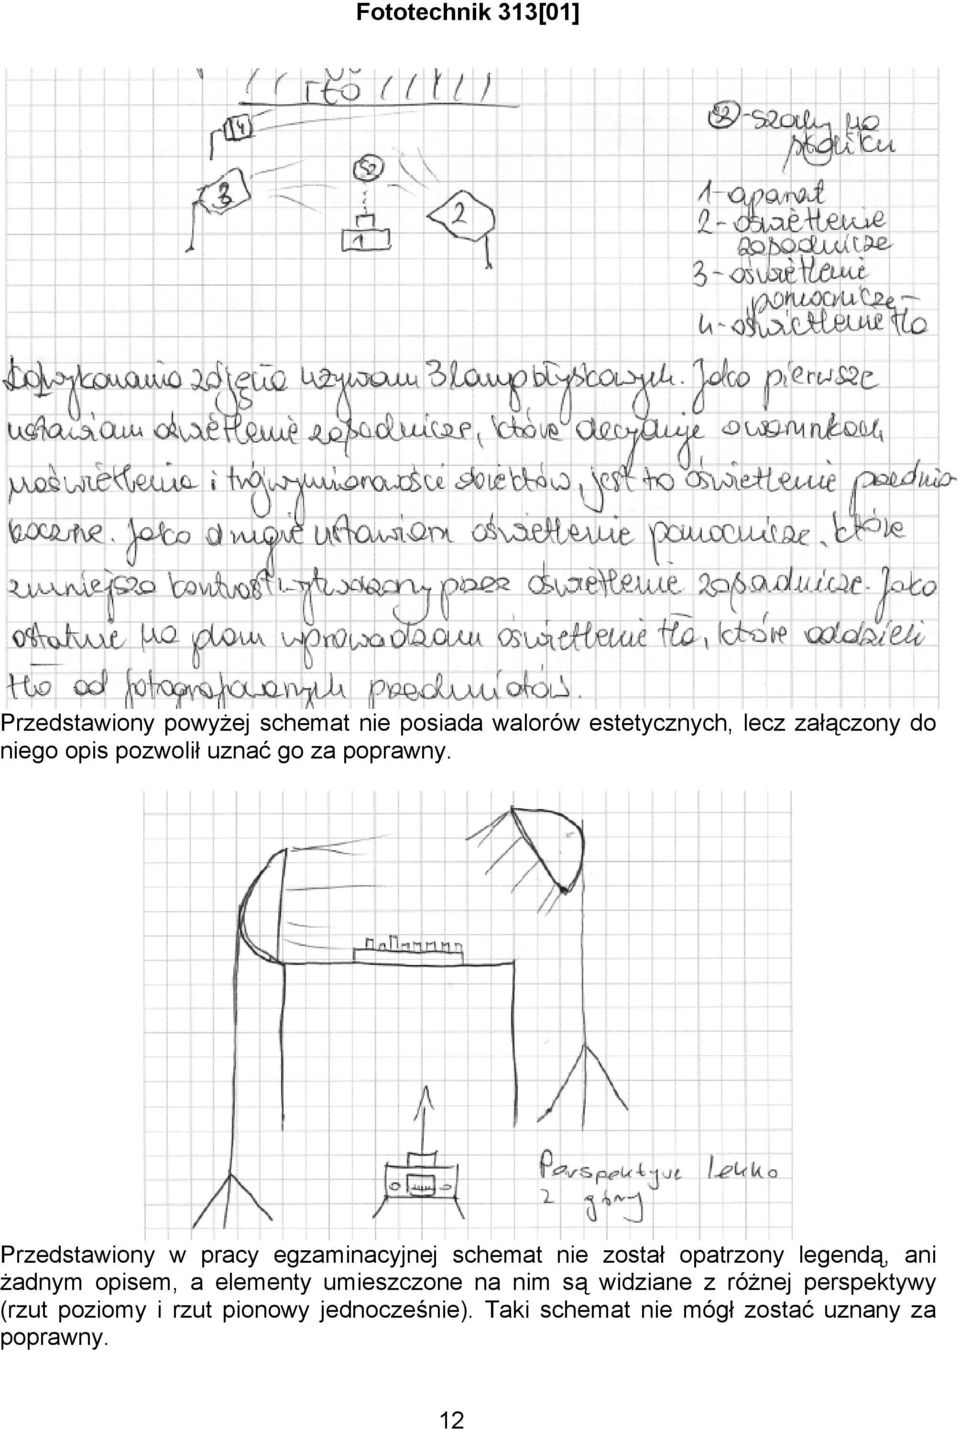 Fototechnik 313[01]
TŁO
4
SZ
3
2
1
SZ-szachy na
stoliku
1-aparat
2-oświetlenie
zasadnicze
3-oświetlenie
pomocnicze
4-oświetlenie tła
Do wykonania zdjęcia używam 3 lamp błyskowych. Jako pierwsze
ustawiam oświetlenie zasadnicze, które decyduje o warunkach
naświetlenia i trójwymiarowości obiektów, jest to oświetlenie przednio
boczne. Jako drugie ustawiam oświetlenie pomocnicze, które
zmniejsza kontrast wytwarzony przez oświetlenie zasadnicze. Jako
ostatnie na plan wprowadzam oświetlenie tła, które oddzieli
tło od fotografowanych przedmiotów.
Przedstawiony powyżej schemat nie posiada walorów estetycznych, lecz załączony do
niego opis pozwolił uznać go za poprawny.
Perspektywa lekko
z góry
Przedstawiony w pracy egzaminacyjnej schemat nie został opatrzony legendą, ani
żadnym opisem, a elementy umieszczone na nim są widziane z różnej perspektywy
(rzut poziomy i rzut pionowy jednocześnie). Taki schemat nie mógł zostać uznany za
poprawny.
12